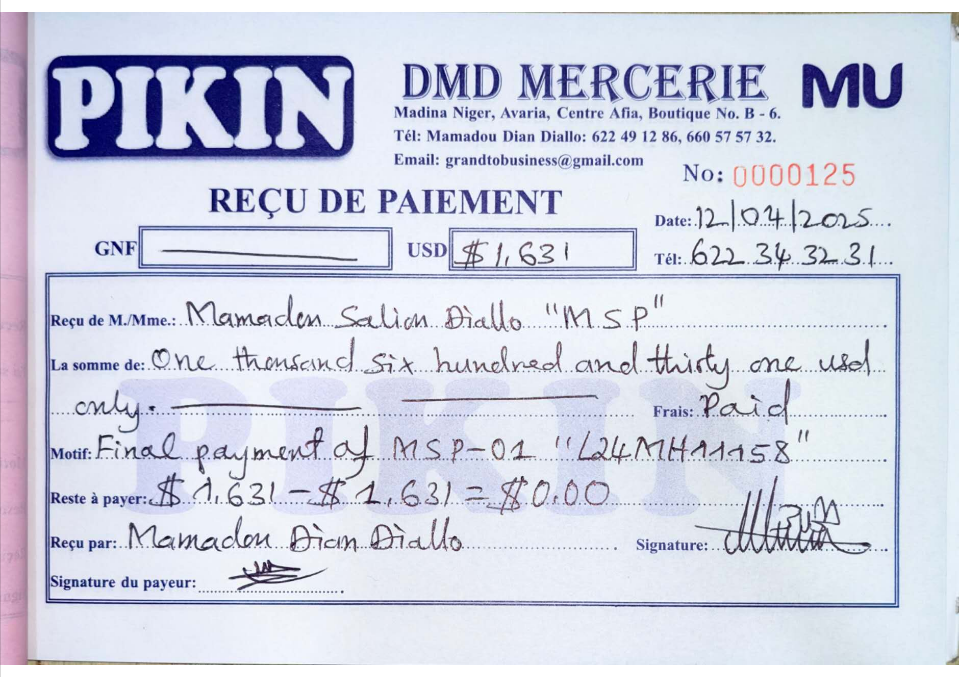 PIKIN
DMD MERCERIE
MU
Madina Niger, Avaria, Centre Afia, Boutique No. B - 6.
Tél: Mamadou Dian Diallo: 622 49 12 86, 660 57 57 32.
Email: grandtobusiness@gmail.com
No: 0000125
REÇU DE PAIEMENT
Date: 12/04/2025
GNF
USD $1,631
Tél: 622 34 32 31
Reçu de M./Mme.: Mamadou Saliou Diallo "MSP"
La somme de: One thousand six hundred and thirty one usd
only.
Frais: Paid
Motif: Final payment of MSP-01 "L24MH11158"
Reste à payer: $1,631 - $1,631 = $0.00
Reçu par: Mamadou Dian Diallo
Signature:
Signature du payeur:
PIKIN